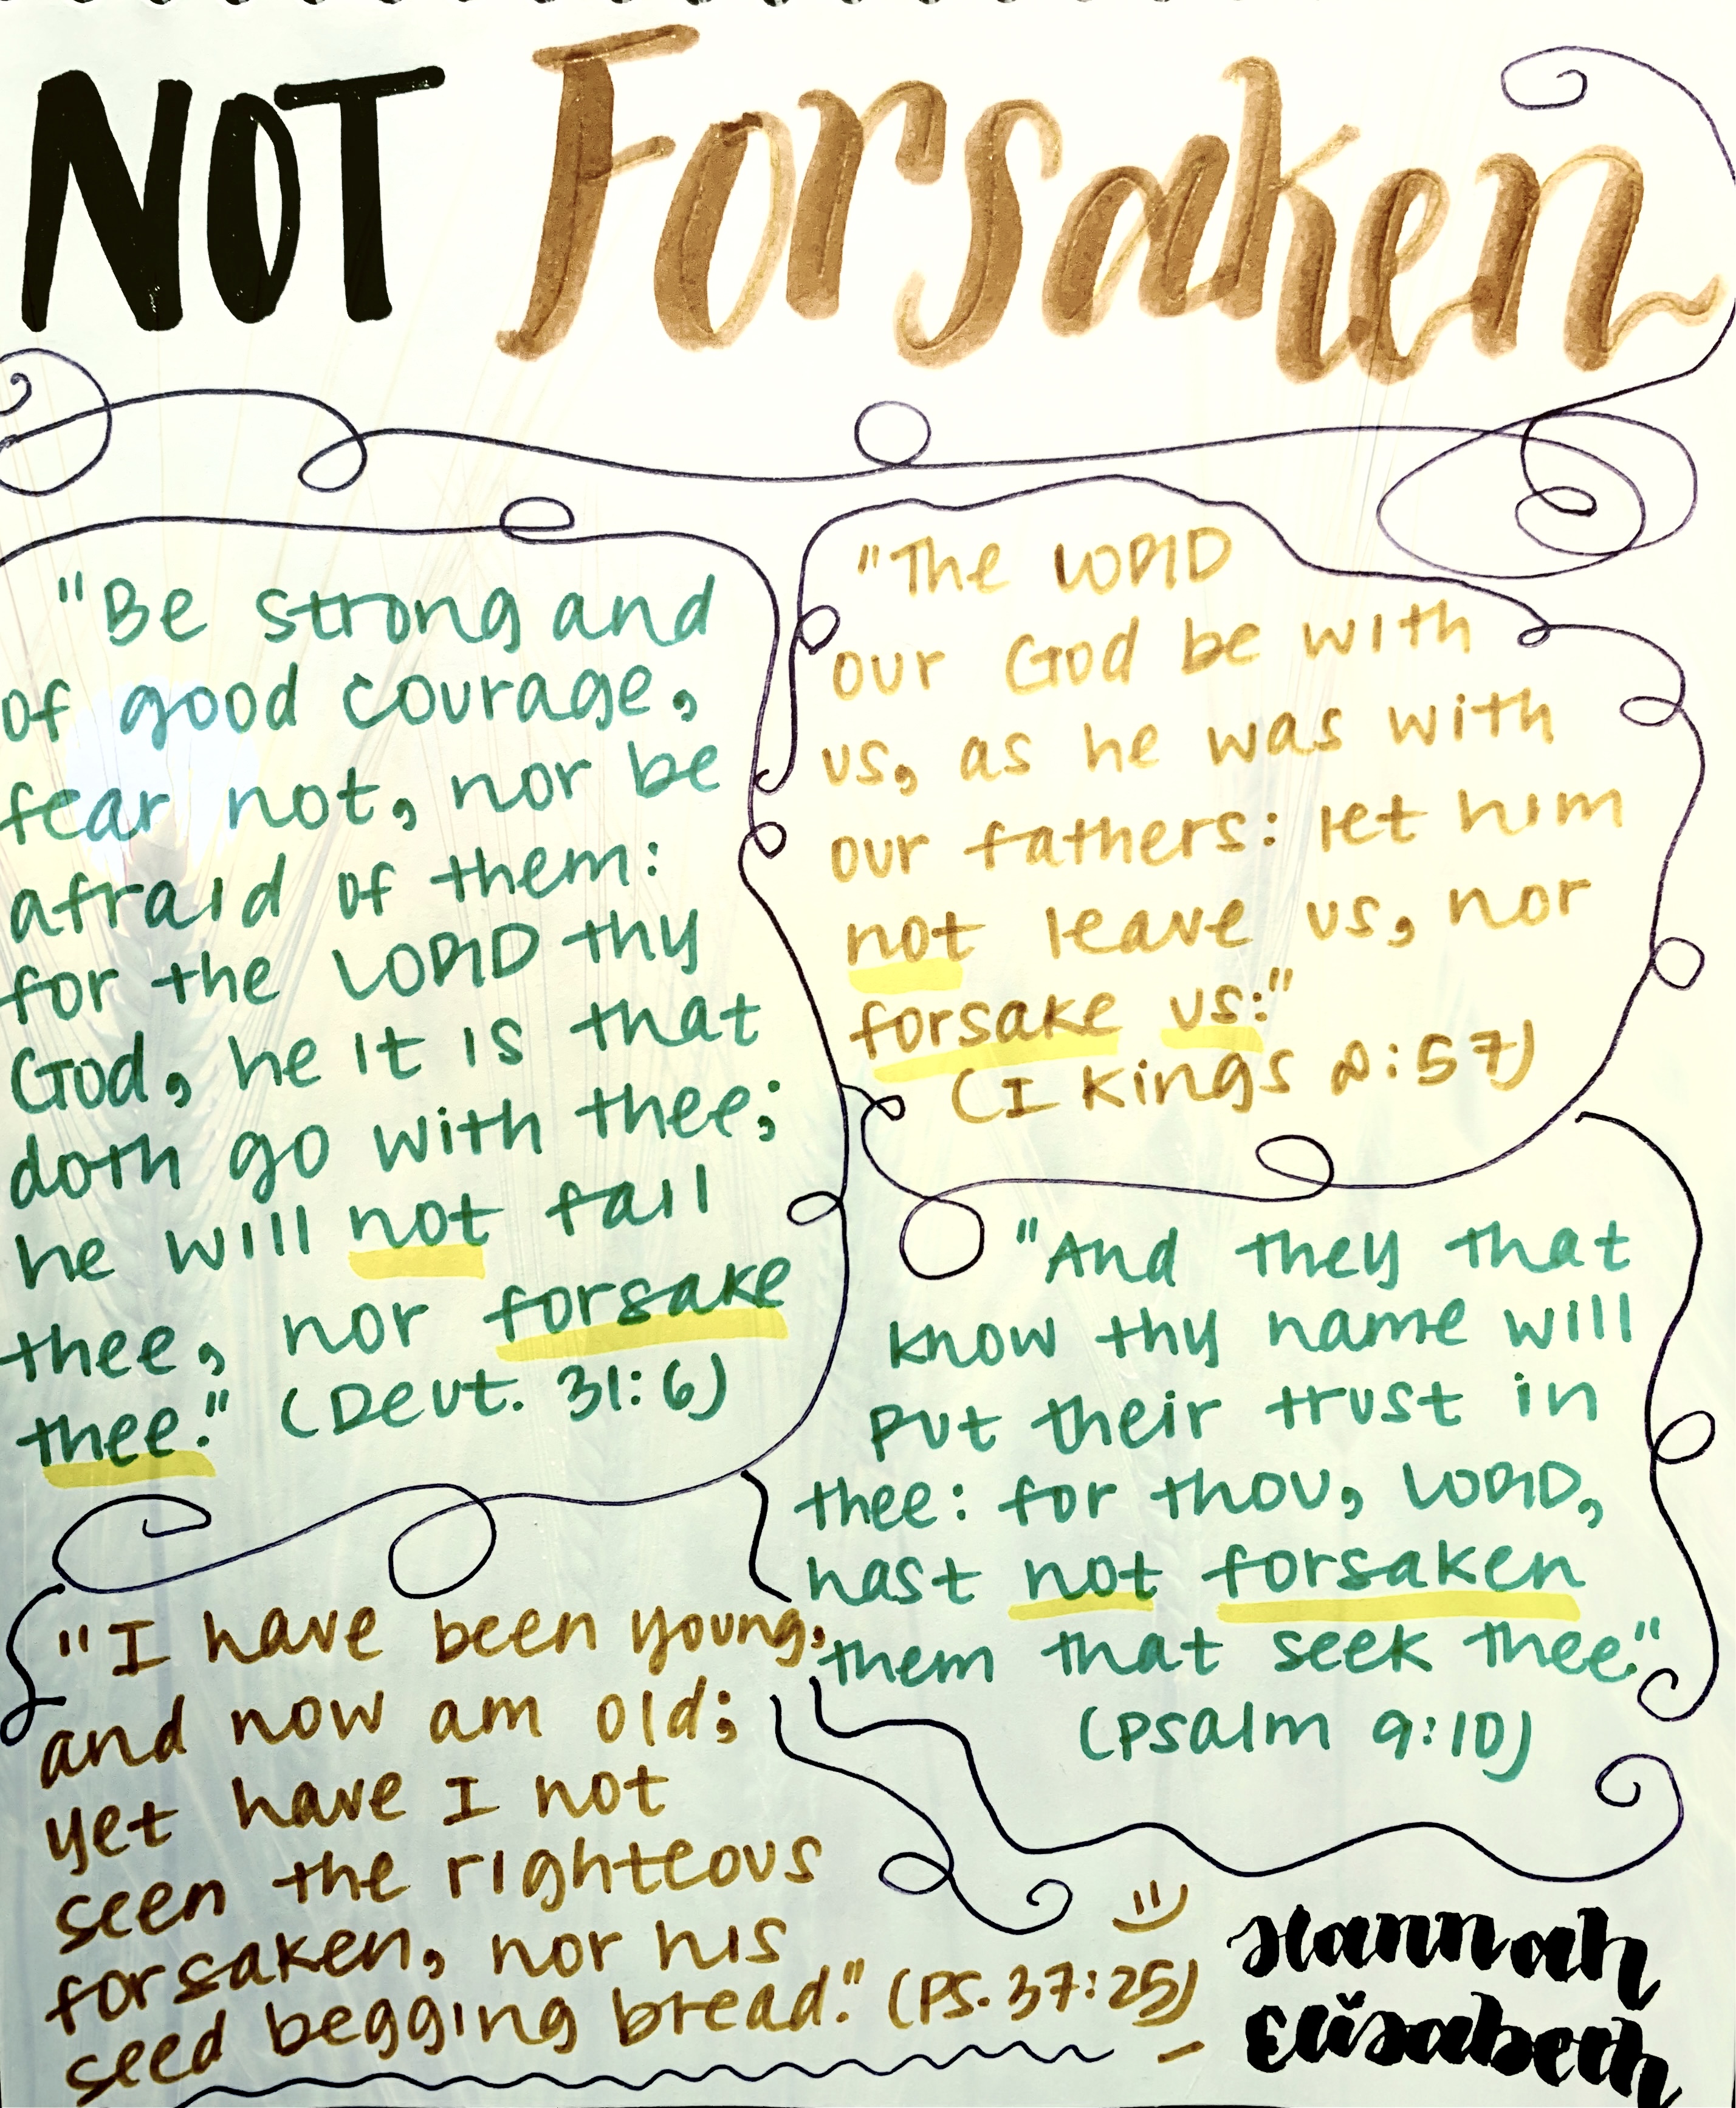 NOT Forsaken
"Be strong and
of good courage,
fear not, nor be
afraid of them:
for the LORD thy
God, he it is that
doth go with thee;
he will not fail
thee, nor forsake
thee." (Deut. 31:6)
"The LORD
our God be with
us, as he was with
our fathers: let him
not leave us, nor
forsake us:"
(I Kings 8:57)
"And they that
know thy name will
put their trust in
thee: for thou, LORD,
hast not forsaken
them that seek thee."
(Psalm 9:10)
"I have been young,
and now am old;
yet have I not
seen the righteous
forsaken, nor his
seed begging bread." (PS. 37:25)
Hannah
Elisabeth